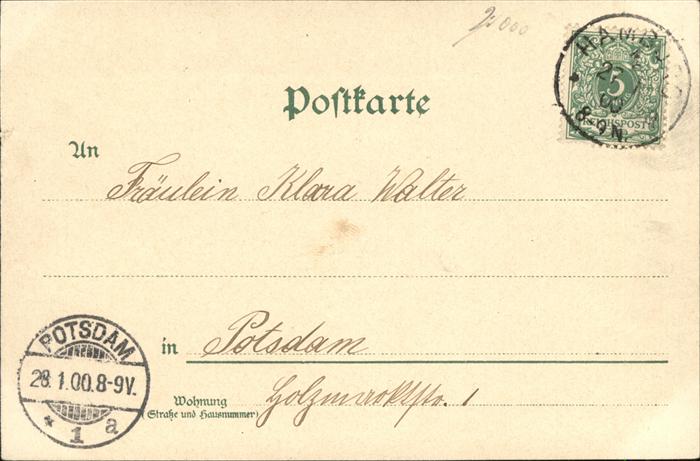 HAMBURG
27 1 00
8-9N.
5
REICHSPOST
Postkarte
An
Fräulein Klara Walter
in Potsdam
Wohnung
(Straße und Hausnummer)
Holzmarktstr. 1
POTSDAM
28.1.00.8-9V.
* 1 a